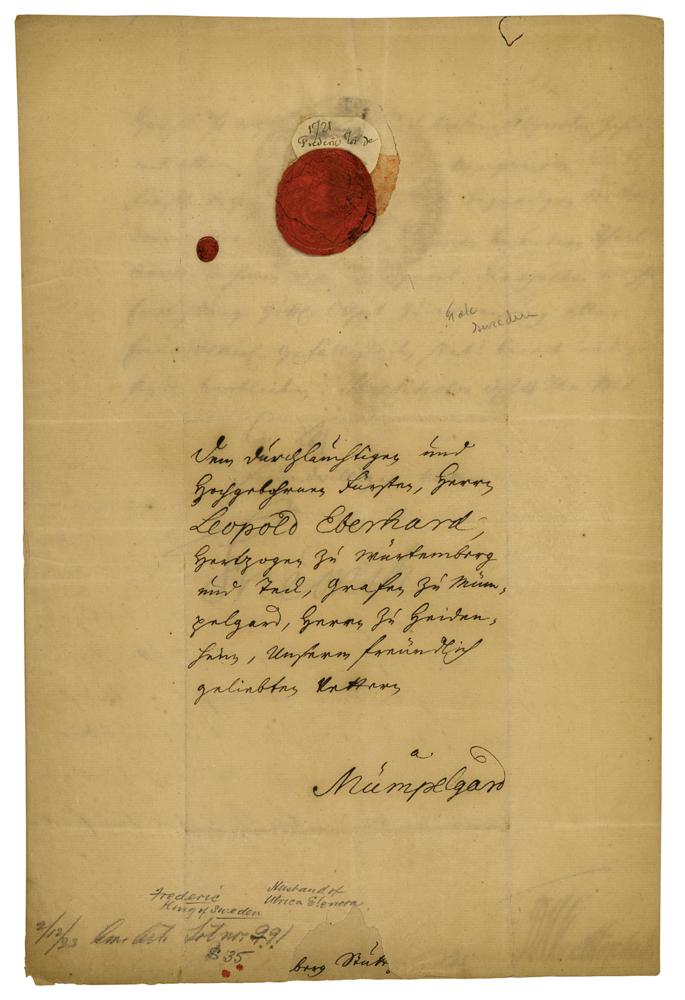 1721
Frederic
Sweden
Dem Durchläuchtigen und
Hochgebohrnen Fürsten, Herrn
Leopold Eberhard,
Hertzogen zu Würtemberg
und Teck, Grafen zu Müm-
pelgard, Herrn zu Heiden-
heim, Unserm freündlich
geliebten Vettern
a
Mümpelgard
Frederic
King of Sweden
Husband of
Ulrica Elenora
2/12/23 Lot no 991
$35